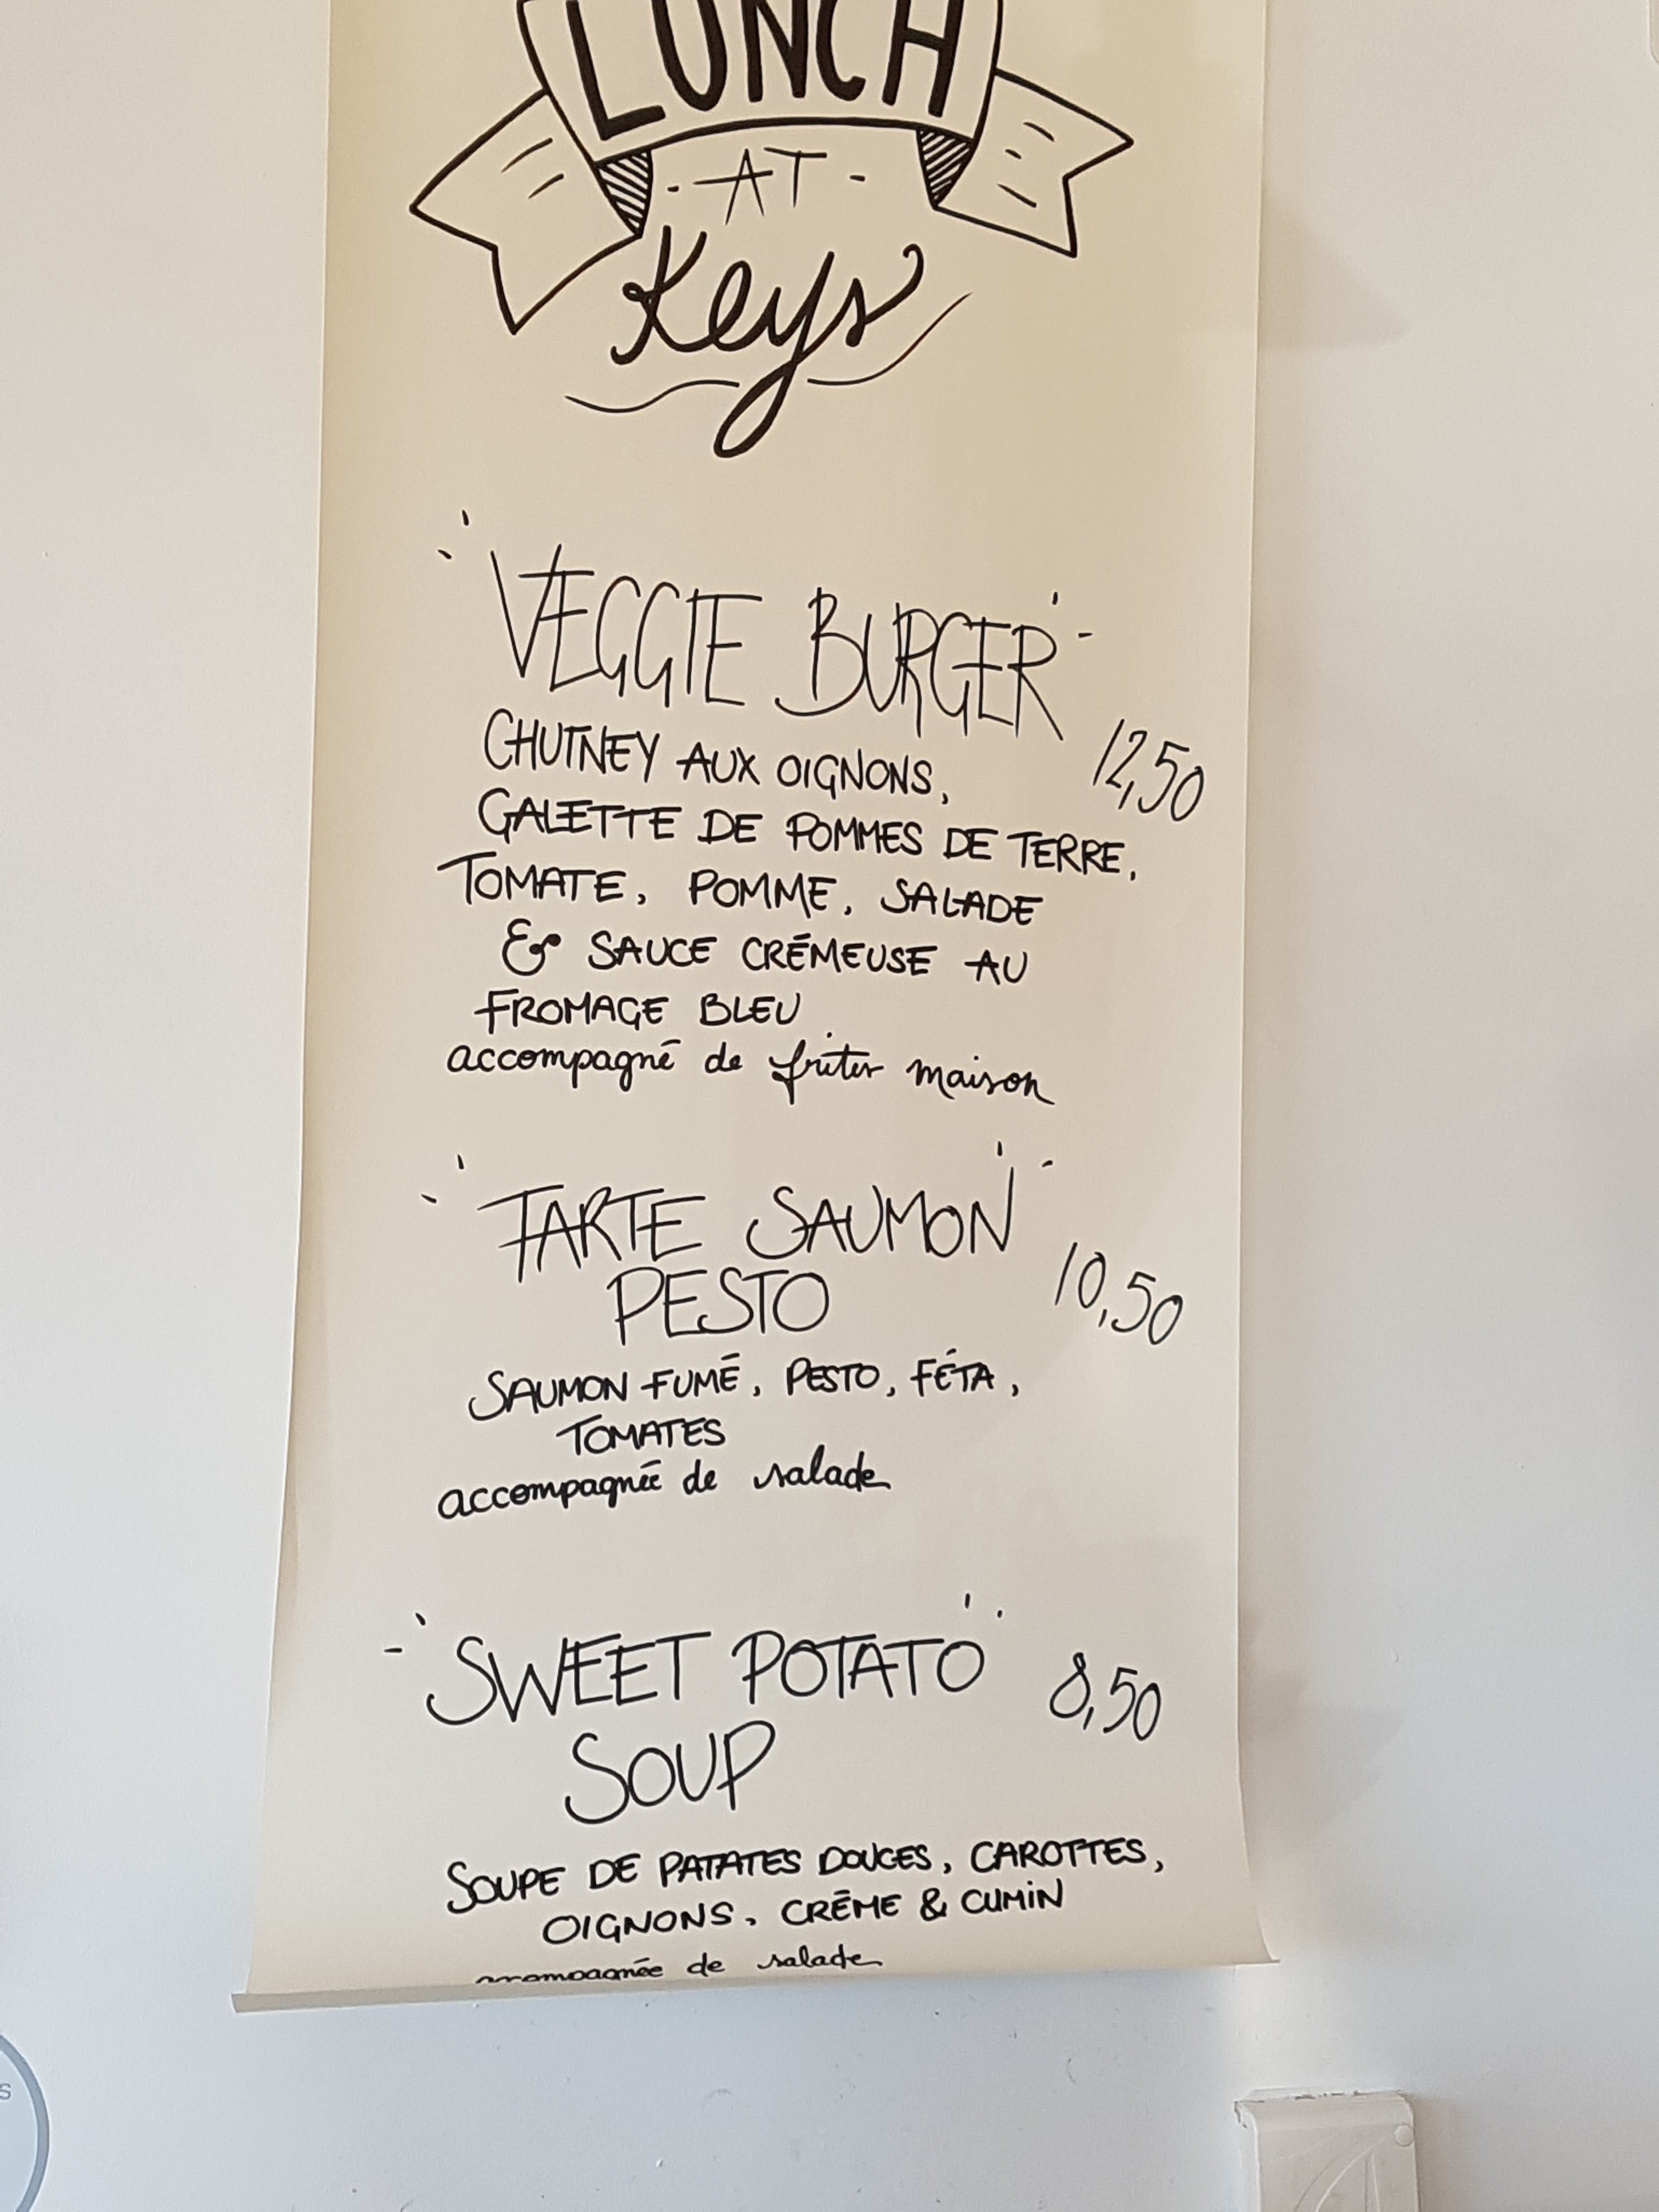 LUNCH
- AT -
Keys
VEGGIE BURGER
12,50
CHUTNEY AUX OIGNONS,
GALETTE DE POMMES DE TERRE,
TOMATE, POMME, SALADE
& SAUCE CRÉMEUSE AU
FROMAGE BLEU
accompagné de frites maison
TARTE SAUMON
PESTO
10,50
SAUMON FUMÉ, PESTO, FÉTA,
TOMATES
accompagnée de salade
SWEET POTATO
8,50
SOUP
SOUPE DE PATATES DOUCES, CAROTTES,
OIGNONS, CRÈME & CUMIN
accompagnée de salade